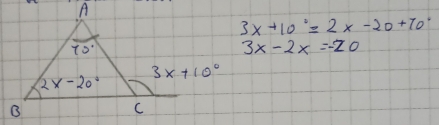 A
70°
3x+10°=2x-20+70°
3x-2x=-20
2x-20°
3x+10°
B
C